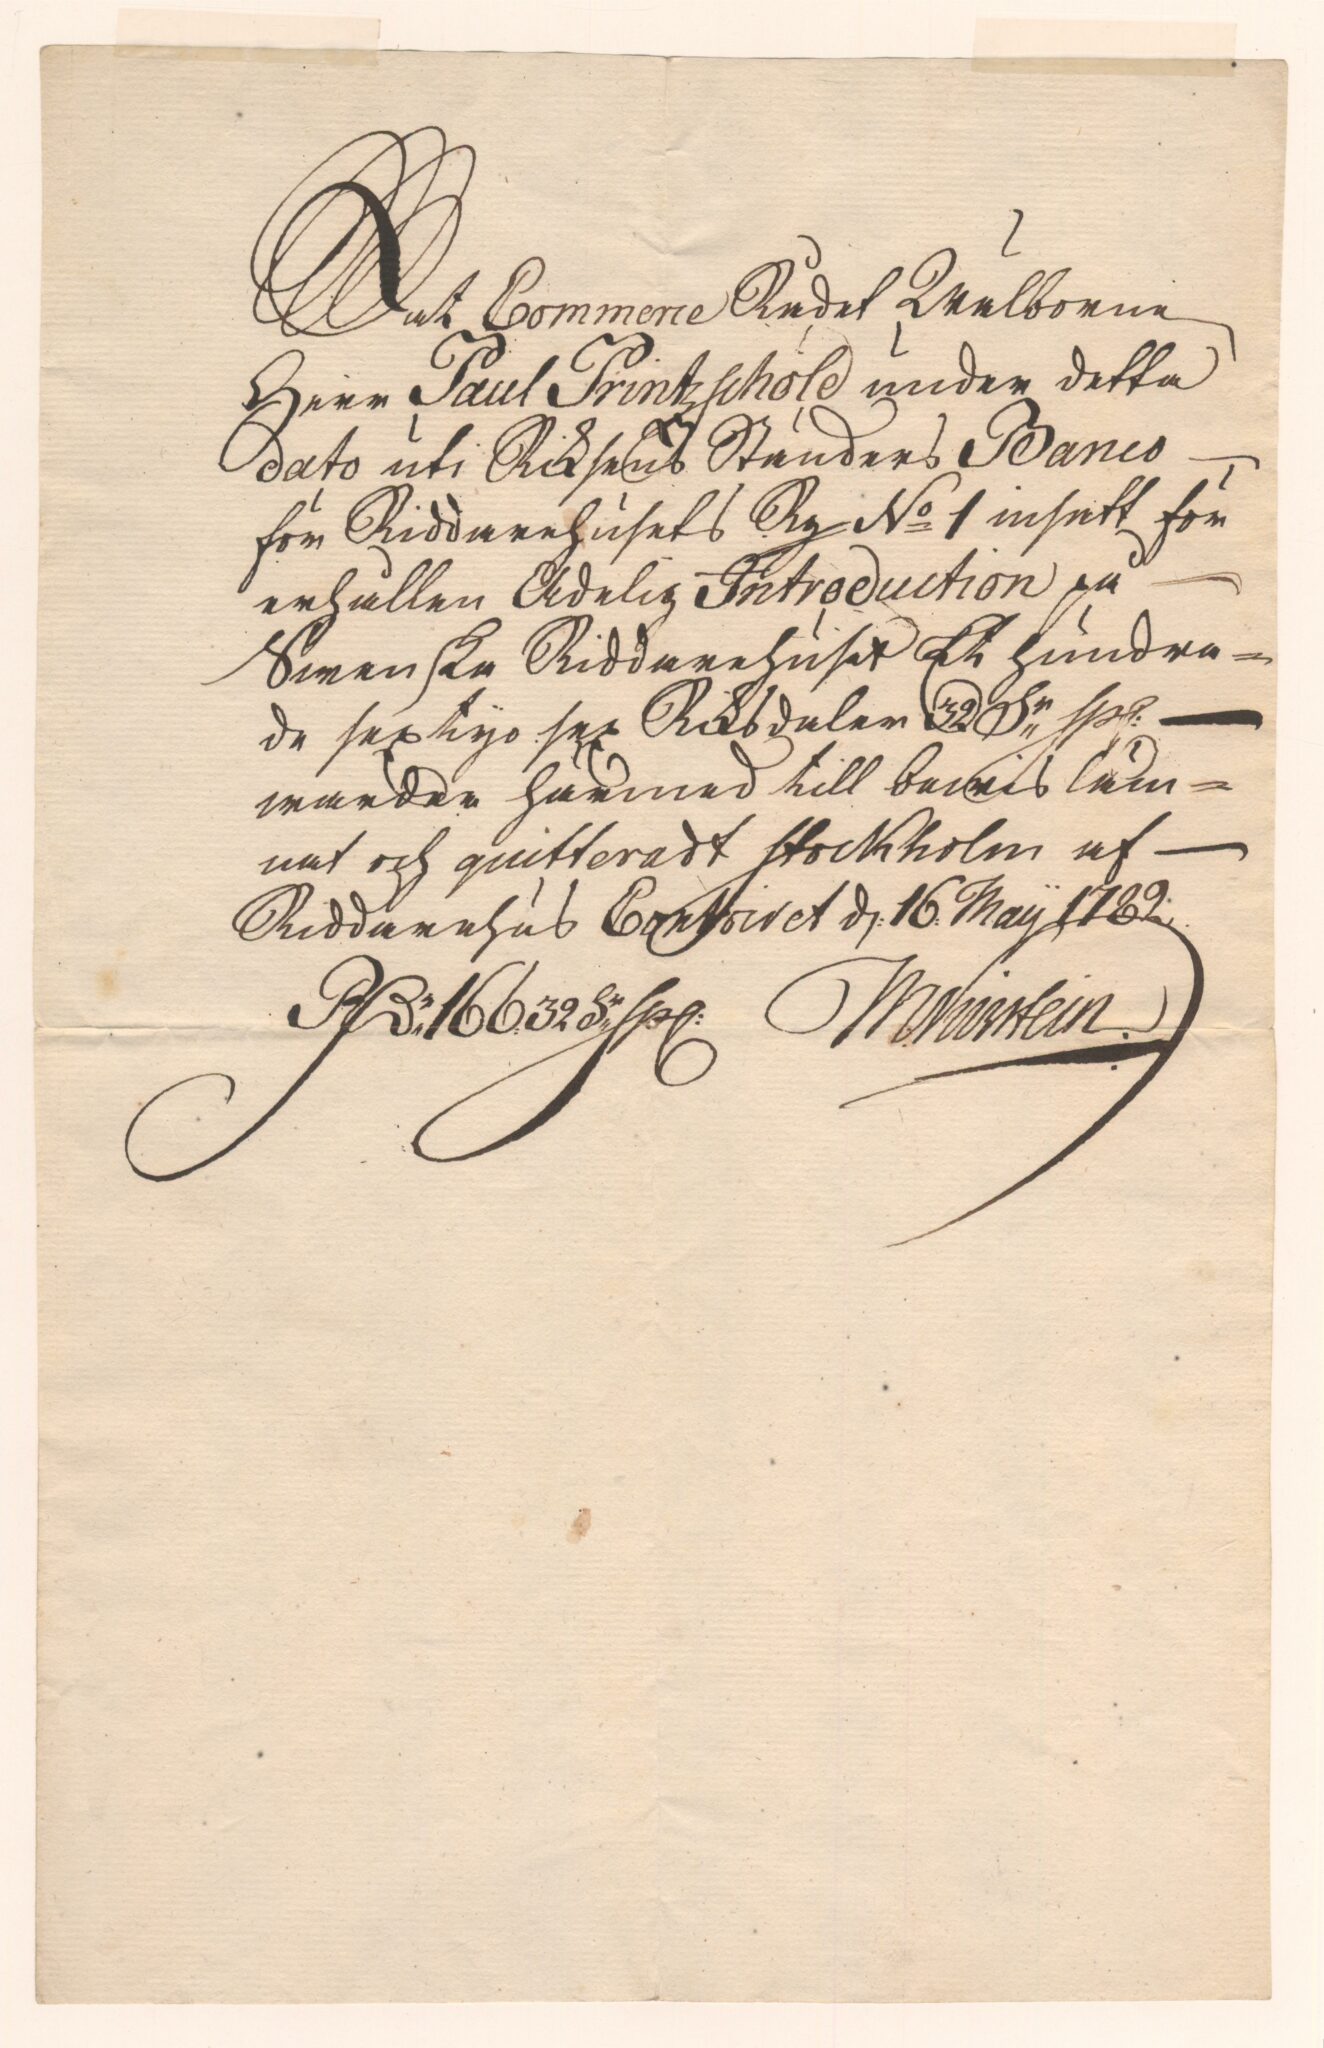 At Commerce Rådet Wälborne
Herr Paul Printzschöld under detta
dato uti Riksens Ständers Banco —
för Riddarehusets Rg No 1 insatt för
erhållen Adelig Introduction på —
Swenska Riddarehuset Ett hundra=
de sextijo sex Riksdaler 32 sr spe: —
warder härmed till bewis läm=
nat och quitteradt Stockholm af —
Riddarehus Contoiret d: 16 Maÿ 1782.
Rdr 166. 32 sr spe: